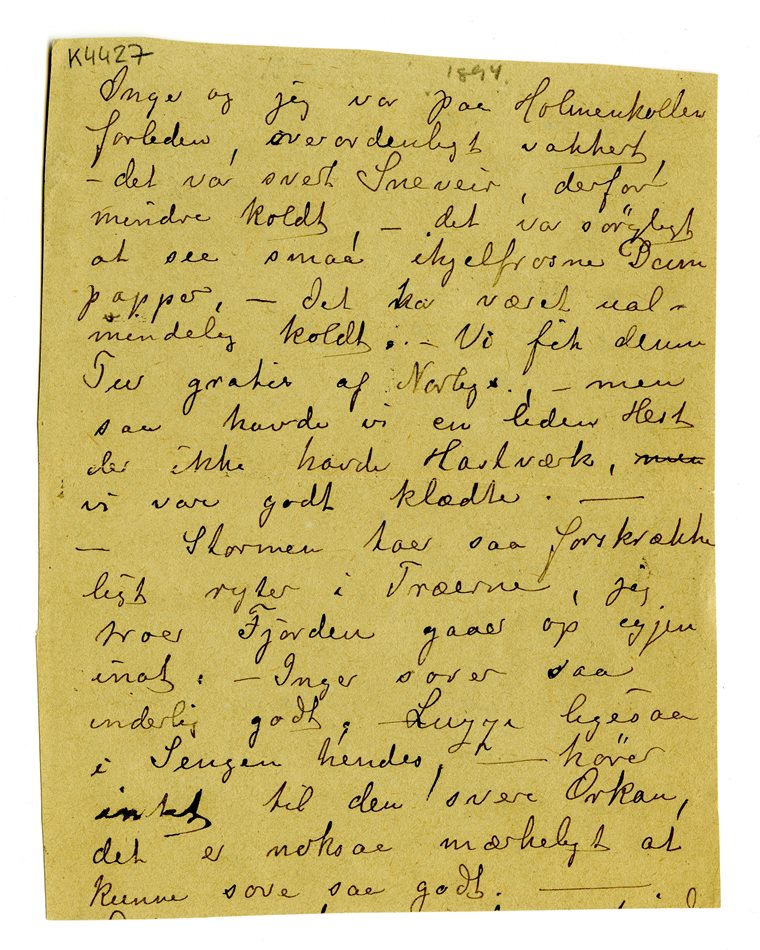 K4427
1894.
Inger og jeg var paa Holmenkollen
forleden, overordenligt vakkert,
– det var svert Sneveir, derfor
mindre koldt, – det var sörgligt
at see smaa ihjelfrosne Dom
papper, – det ha været ual-
mindelig koldt. – Vi fik denne
Tur gratis af – men
saa havde vi en leden Hest
der ikke havde Hastværk, men
vi var godt klædte. —
— Stormen taer saa forskrække
ligt ryter i Træerne, jeg
troer Fjorden gaaer op igjen
inat. – Inger sover saa
inderlig godt, ligesaa
i Sengen hendes, — hörer
intet til den svere Orkan,
det er noksaa mærkeligt at
kunne sove saa godt. —